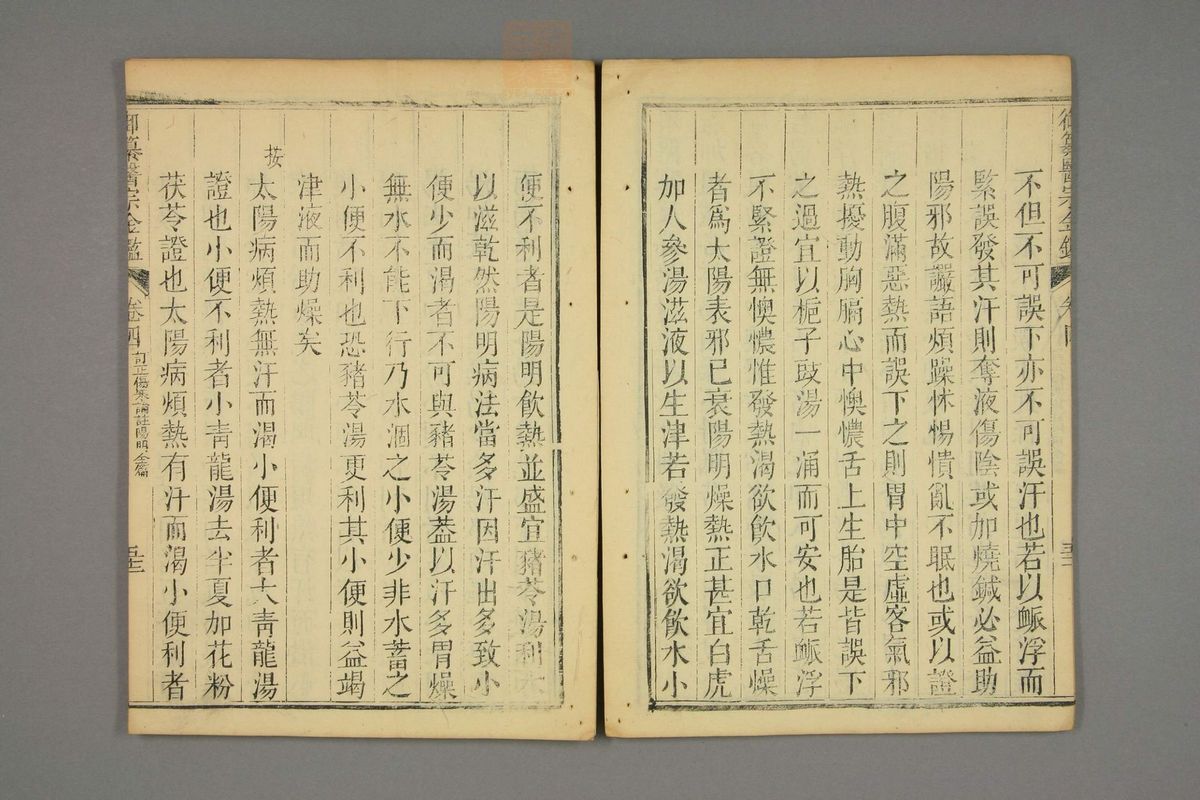 御纂醫宗金鑑
卷四
不但不可誤下亦不可誤汗也若以脈浮而
緊誤發其汗則奪液傷陰或加燒鍼必益助
陽邪故讝語煩躁怵惕憒亂不眠也或以證
之腹滿惡熱而誤下之則胃中空虛客氣邪
熱擾動胸膈心中懊憹舌上生胎是皆誤下
之過宜以梔子豉湯一涌而可安也若脈浮
不緊證無懊憹惟發熱渴欲飲水口乾舌燥
者爲太陽表邪已衰陽明燥熱正甚宜白虎
加人參湯滋液以生津若發熱渴欲飲水小
便不利者是陽明飲熱並盛宜豬苓湯利水
以滋乾然陽明病法當多汗因汗出多致小
便少而渴者不可與豬苓湯葢以汗多胃燥
無水不能下行乃水涸之小便少非水蓄之
小便不利也恐豬苓湯更利其小便則益竭
津液而助燥矣
按太陽病煩熱無汗而渴小便利者大靑龍湯
證也小便不利者小靑龍湯去半夏加花粉
茯苓證也太陽病煩熱有汗而渴小便利者
御纂醫宗金鑑
卷四
訂正傷寒論註陽明全篇